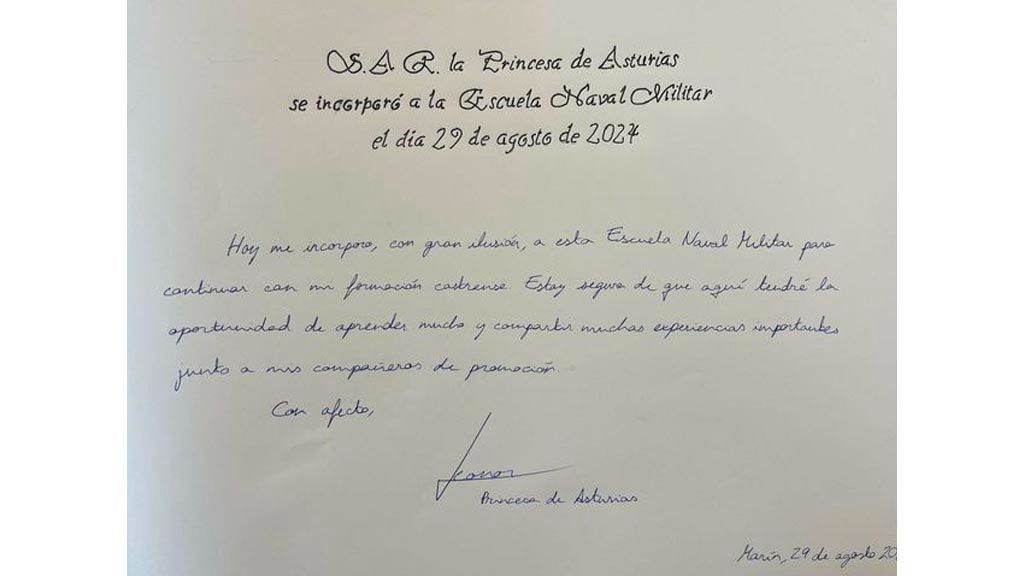 S.A.R. la Princesa de Asturias
se incorporó a la Escuela Naval Militar
el día 29 de agosto de 2024
Hoy me incorporo, con gran ilusión, a esta Escuela Naval Militar para
continuar con mi formación castrense. Estoy segura de que aquí tendré la
oportunidad de aprender mucho y compartir muchas experiencias importantes
junto a mis compañeros de promoción.
Con afecto,
Leonor
Princesa de Asturias
Marín, 29 de agosto 20